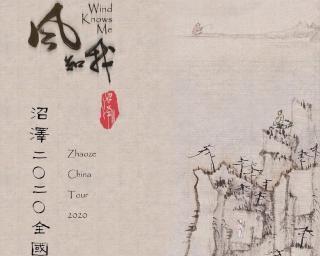 Wind
Knows
Me
風知我
沼澤二〇二〇全國
Zhaoze
China
Tour
2020